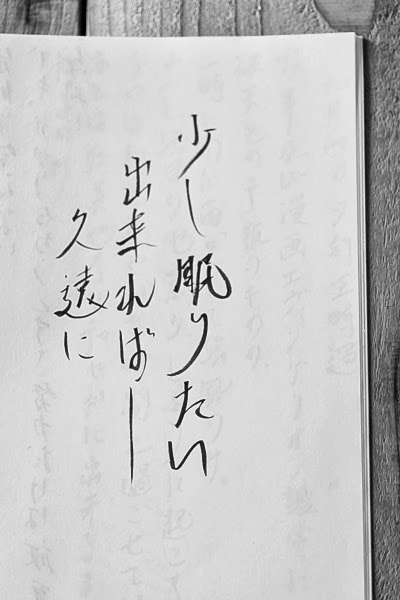 少し眠りたい
出来ればー
久遠に